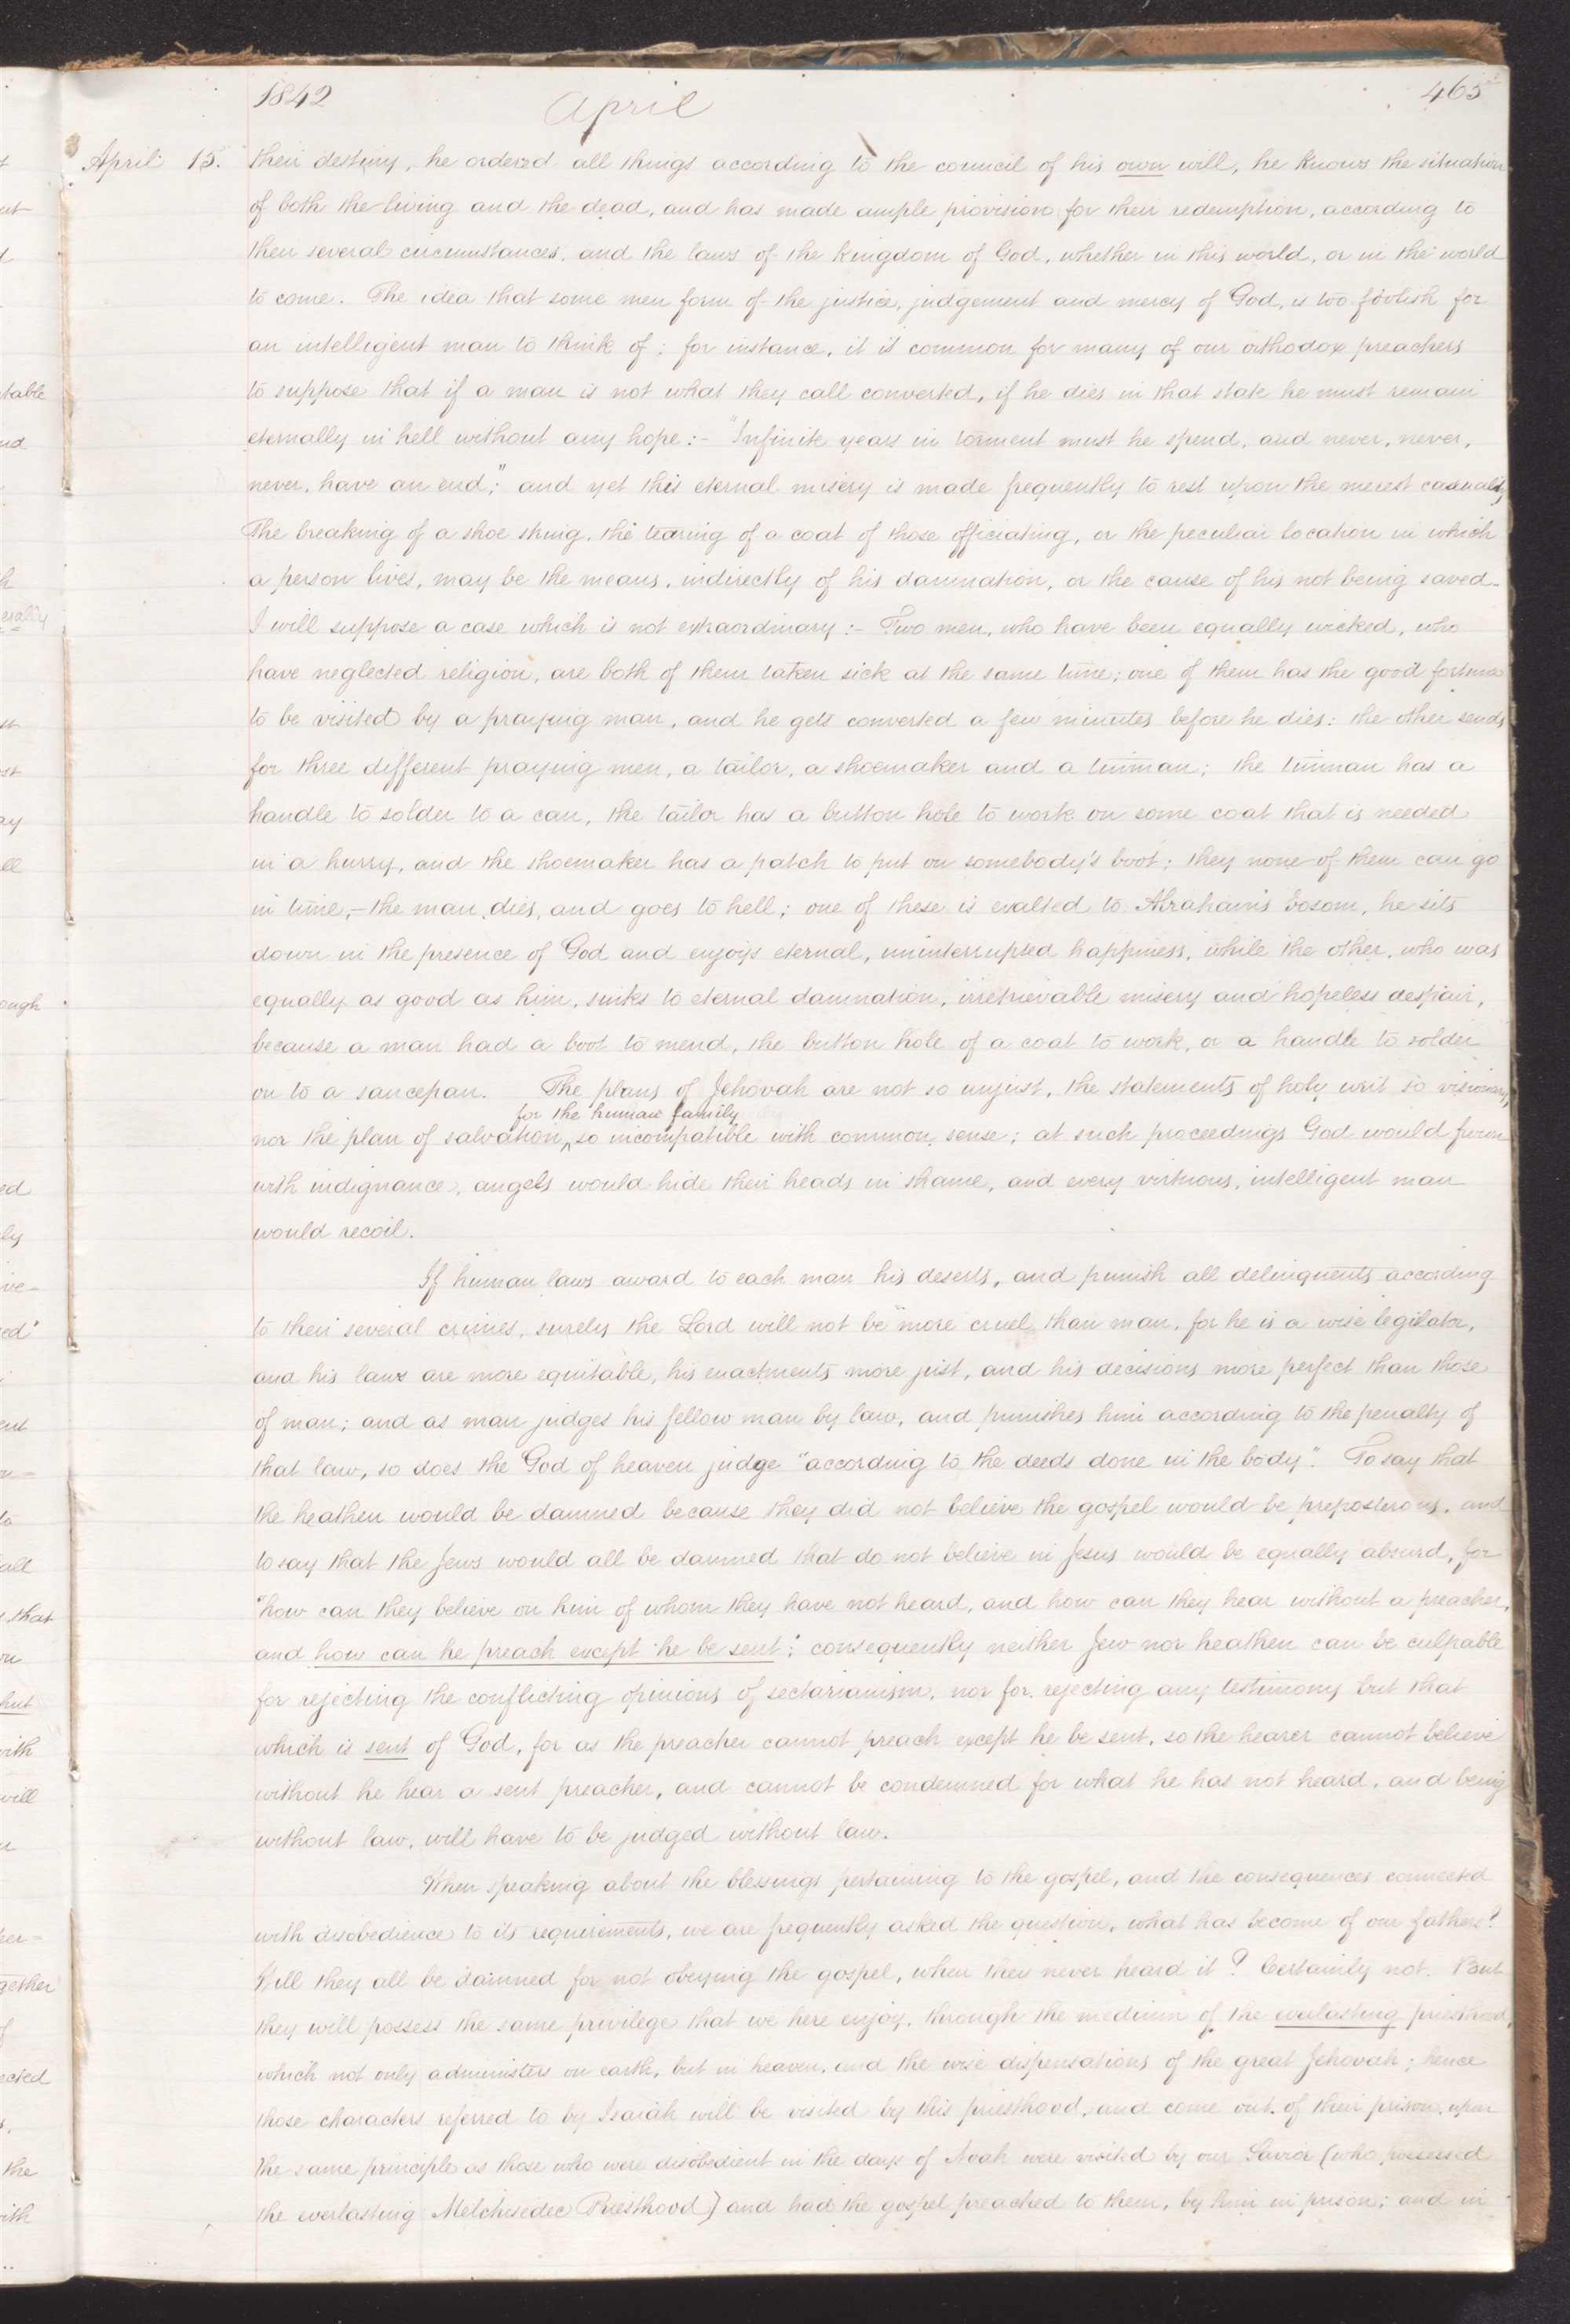 1842 April 465
April 15. their destiny, he ordered all things according to the council of his own will, he knows the situation
of both the living and the dead, and has made ample provision for their redemption, according to
their several circumstances, and the laws of the kingdom of God, whether in this world, or in the world
to come. The idea that some men form of the justice, judgement and mercy of God, is too foolish for
an intelligent man to think of; for instance, it is common for many of our orthodox preachers
to suppose that if a man is not what they call converted, if he dies in that state he must remain
eternally in hell without any hope:- "Infinite years in torment must he spend, and never, never,
never, have an end;" and yet this eternal misery is made frequently to rest upon the merest casualty
The breaking of a shoe string, the tearing of a coat of those officiating, or the peculiar location in which
a person lives, may be the means, indirectly of his damnation, or the cause of his not being saved.
I will suppose a case which is not extraordinary:- Two men, who have been equally wicked, who
have neglected religion, are both of them taken sick at the same time; one of them has the good fortune
to be visited by a praying man, and he gets converted a few minutes before he dies: the other sends
for three different praying men, a tailor, a shoemaker and a tinman; the tinman has a
handle to solder to a can, the tailor has a button hole to work on some coat that is needed
in a hurry, and the shoemaker has a patch to put on somebody's boot; they none of them can go
in time,- the man dies, and goes to hell; one of these is exalted to Abraham's bosom, he sits
down in the presence of God and enjoys eternal, uninterrupted happiness, while the other, who was
equally as good as him, sinks to eternal damnation, irretrievable misery and hopeless despair,
because a man had a boot to mend, the button hole of a coat to work, or a handle to solder
on to a saucepan. The plans of Jehovah are not so unjust, the statements of holy writ so visionary,
for the human family
nor the plan of salvation ^ so incompatible with common sense; at such proceedings God would frown
with indignance, angels would hide their heads in shame, and every virtuous, intelligent man
would recoil.
If human laws award to each man his deserts, and punish all delinquents according
to their several crimes, surely the Lord will not be more cruel than man, for he is a wise legilator,
and his laws are more equitable, his enactments more just, and his decisions more perfect than those
of man; and as man judges his fellow man by law, and punishes him according to the penalty of
that law, so does the God of heaven judge "according to the deeds done in the body". To say that
the heathen would be damned because they did not believe the gospel would be preposterous, and
to say that the Jews would all be damned that do not believe in Jesus would be equally absurd, for
"how can they believe on him of whom they have not heard, and how can they hear without a preacher,
and how can he preach except he be sent"; consequently neither Jew nor heathen can be culpable
for rejecting the conflicting opinions of sectarianism, nor for rejecting any testimony but that
which is sent of God, for as the preacher cannot preach except he be sent, so the hearer cannot believe
without he hear a sent preacher, and cannot be condemned for what he has not heard, and being
without law, will have to be judged without law.
When speaking about the blessings pertaining to the gospel, and the consequences connected
with disobedience to its requirements, we are frequently asked the question, what has become of our fathers?
Will they all be damned for not obeying the gospel, when they never heard it? Certainly not. But
they will possess the same privilege that we here enjoy, through the medium of the everlasting priesthood,
which not only administers on earth, but in heaven, and the wise dispensations of the great Jehovah; hence
those characters referred to by Isaiah will be visited by this priesthood, and come out of their prison, upon
the same principle as those who were disobedient in the days of Noah were visited by our Savior (who possessed
the everlasting Melchisedec Priesthood) and had the gospel preached to them, by him in prison; and in